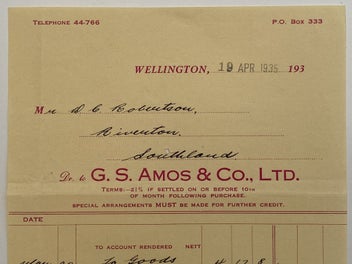 TELEPHONE 44-766 P.O. BOX 333
WELLINGTON, 19 APR 1935 193
Mr D. C. Robertson,
Riverton,
Southland
Dr. to G. S. AMOS & CO., LTD.
TERMS:—2½% IF SETTLED ON OR BEFORE 10TH
OF MONTH FOLLOWING PURCHASE.
SPECIAL ARRANGEMENTS MUST BE MADE FOR FURTHER CREDIT.
DATE
TO ACCOUNT RENDERED NETT
To Goods